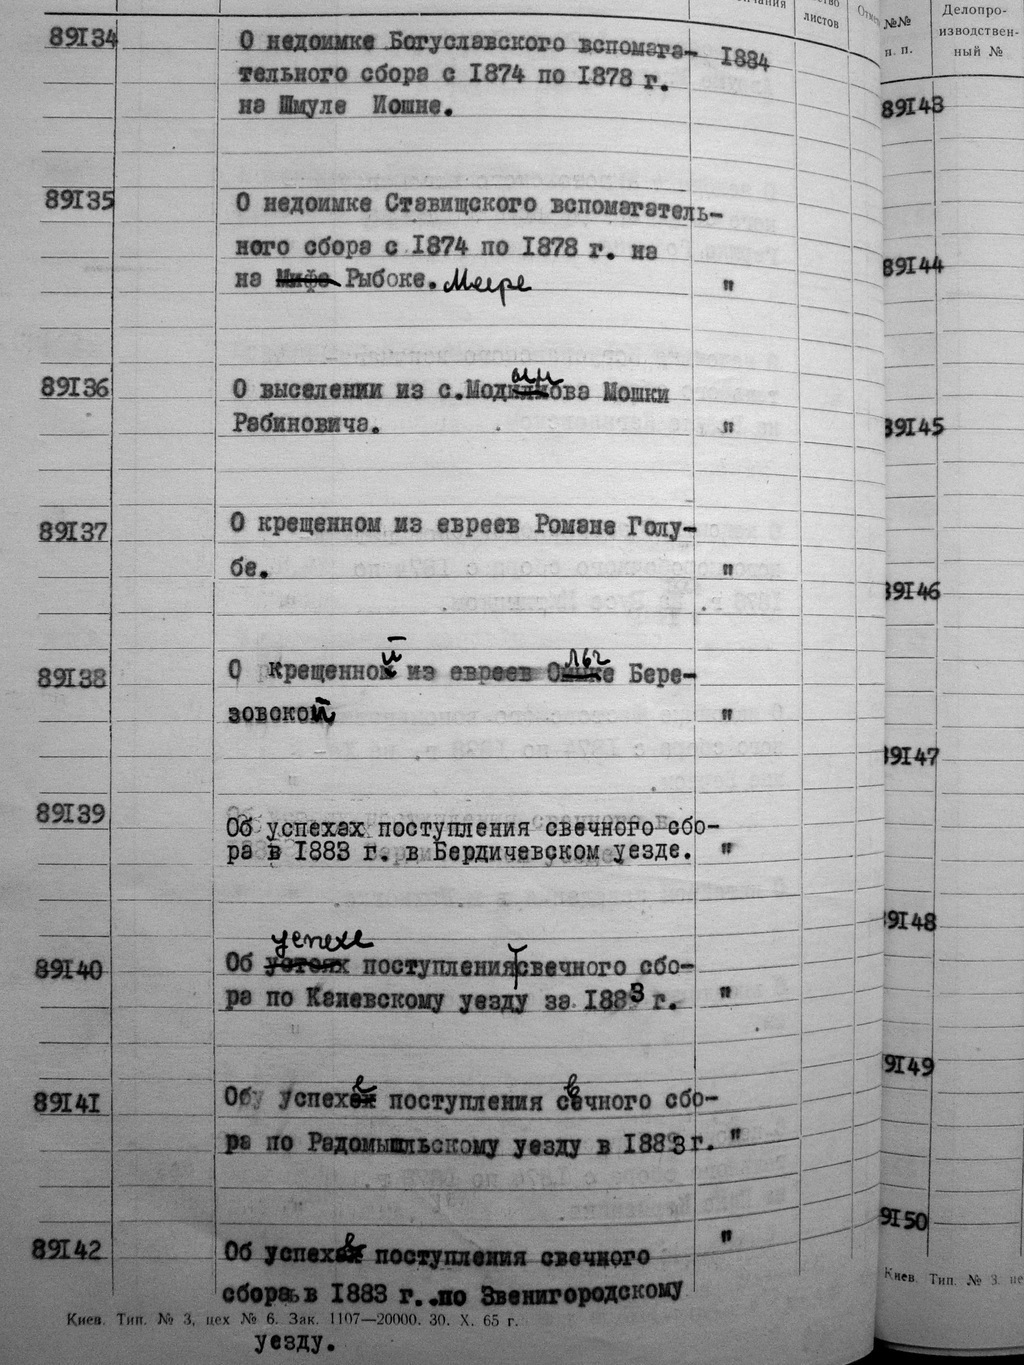 чания
ство
листов
Отме
№№
п. п.
Делопро-
изводствен-
ный №
89134 О недоимке Богуславского вспомага- 1884
тельного сбора с 1874 по 1878 г.
на Шмуле Иошне.
89135 О недоимке Ставищского вспомагатель-
ного сбора с 1874 по 1878 г. на
на Мифе Рыбоке. Меере "
89136 О выселении из с.Модылькова Мошки
Рабиновича. "
89137 О крещенном из евреев Романе Голу-
бе. "
89138 О крещенной из евреев Ольге Бере-
зовской "
89139 Об успехах поступления свечного сбо-
ра в 1883 г. в Бердичевском уезде. "
успехе
89140 Об поступления свечного сбо-
ра по Каневскому уезду за 1883 г. "
89141 Об успехе поступления свечного сбо-
ра по Радомышльскому уезду в 1883 г. "
89142 Об успехе поступления свечного "
сбора в 1883 г. по Звенигородскому
Киев. Тип. № 3, цех № 6. Зак. 1107—20000. 30. X. 65 г.
уезду.
89143
89144
89145
89146
89147
89148
89149
89150
Киев. Тип. № 3. це